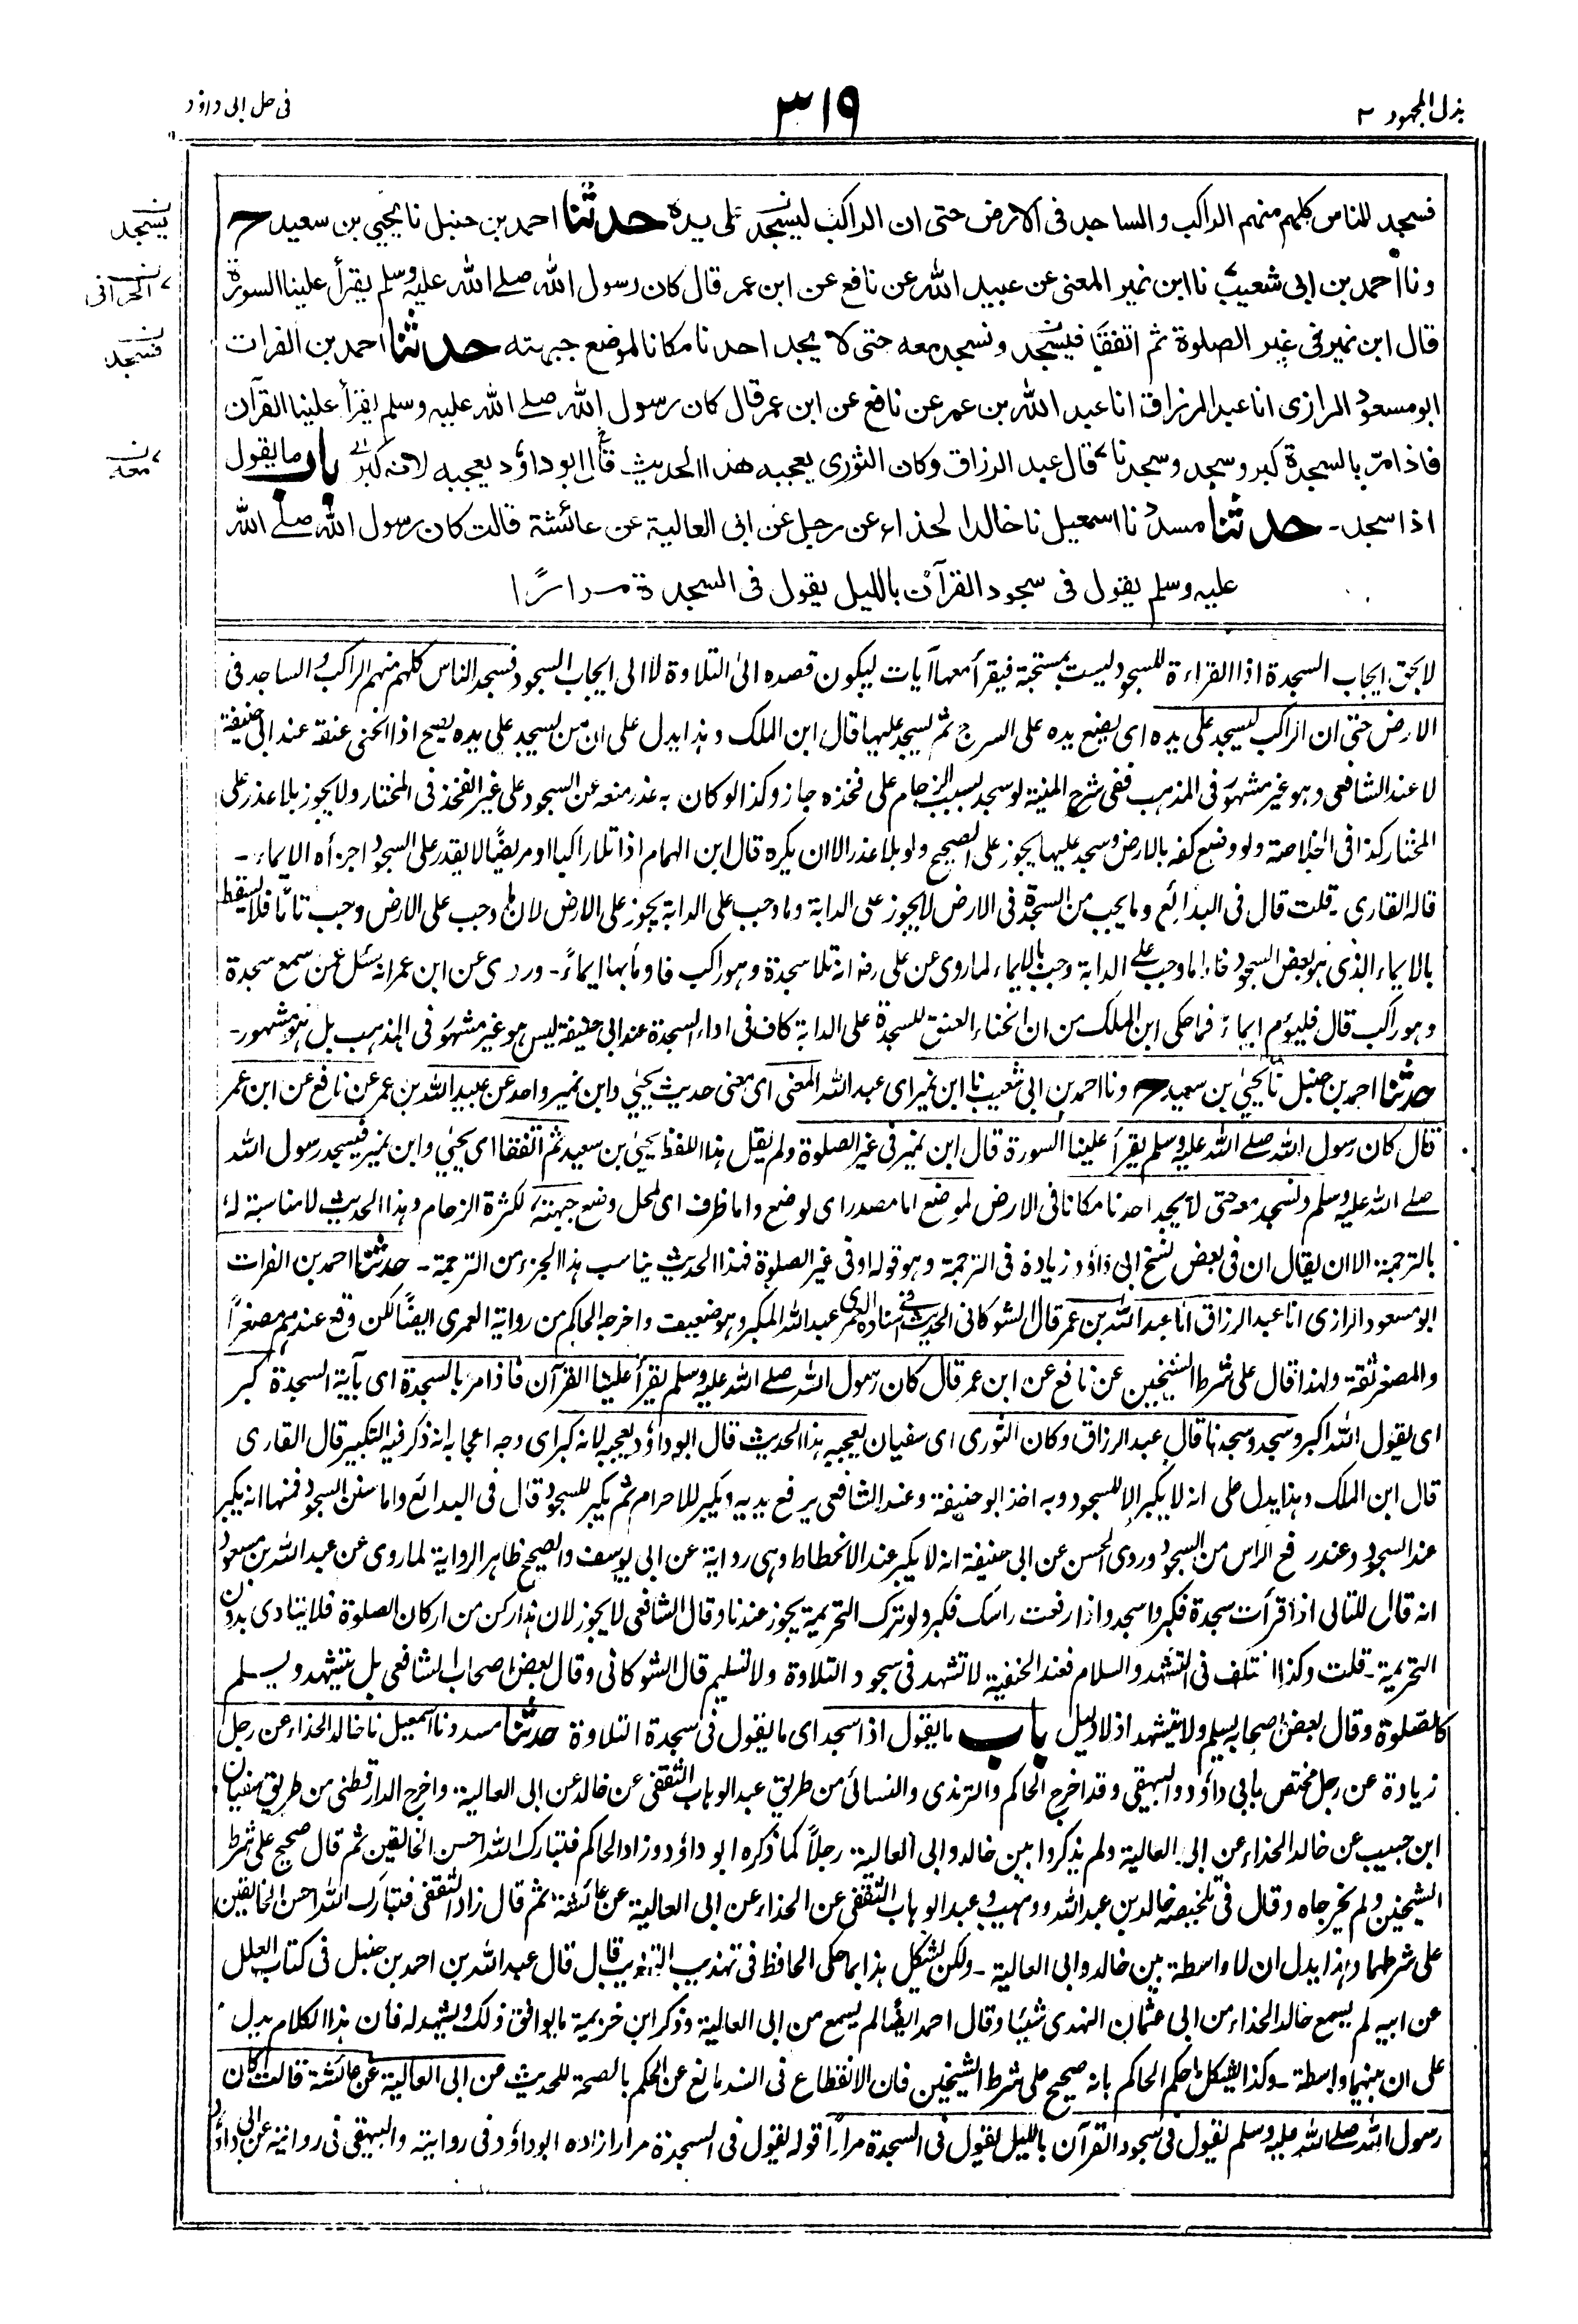 بذل المجهود ٢
٣١٩
فى حل ابى داؤد
فسجد للناس كلهم منهم الراكب والساجد فى الارض حتى ان الراكب ليسجد على يده حدثنا احمد بن حنبل نا يحيى بن سعيد ح
ونا احمد بن ابى شعيب نا ابن نمير المعنى عن عبيد الله عن نافع عن ابن عمر قال كان رسول الله صلے الله عليه وسلم يقرأ علينا السورة
قال ابن نمير فى غير الصلوة ثم اتفقا فيسجد ونسجد معه حتى لا يجد احدنا مكانا لموضع جبهته حدثنا احمد بن الفرات
ابو مسعود الرازى انا عبد الرزاق انا عبد الله بن عمر عن نافع عن ابن عمر قال كان رسول الله صلے الله عليه وسلم يقرأ علينا القرآن
فاذا مرّ بالسجدة كبر وسجد وسجدنا قال عبد الرزاق وكان الثورى يعجبه هذا الحديث قال ابو داؤد يعجبه لانه كبر باب ما يقول
اذا سجد۔ حدثنا مسدد نا اسمعيل نا خالد الحذاء عن رجل عن ابى العالية عن عائشة قالت كان رسول الله صلے الله
عليه وسلم يقول فى سجود القرآن بالليل يقول فى السجدة مرارًا
يسجد
الحرانى
فسجد
معه
لا بحق ايجاب السجدة اذا القراءة للسجود ليست بمستحبة فيقرأ معها آيات ليكون قصده الى التلاوة لا الى ايجاب السجود فسجد الناس كلهم منهم الراكب والساجد فى
الارض حتى ان الراكب ليسجد على يده اى يضع يده على السرج ثم يسجد عليها قال ابن الملك وهذا يدل على ان من يسجد على يده يصح اذا انحنى عنقه عند ابى حنيفة
لا عند الشافعى وهو غير مشهور فى المذهب ففى شرح المنية لو سجد بسبب الزحام على فخذه جاز وكذا لو كان به عذر منعه عن السجود على غير الفخذ فى المختار ولا يجوز بلا عذر على
المختار كذا فى الخلاصة ولو وضع كفه بالارض وسجد عليها يجوز على الصحيح ولو بلا عذر الا ان يكره قال ابن الهمام اذا تلا راكبا او مريضًا لا يقدر على السجود اجزأه الايماء۔
قاله القارى۔ قلت قال فى البدائع وما يجب من السجدة فى الارض لا يجوز على الدابة وما وجب على الدابة يجوز على الارض لان ما وجب على الارض وجب تامًا فلا يسقط
بالايماء الذى هو بعض السجود فاما ما وجب على الدابة وجب بالايماء لما روى عن على رضه انه تلا سجدة وهو راكب فاومأ بها ايماءً۔ وروى عن ابن عمر انه سئل عن سمع سجدة
وهو راكب قال فليؤم ايماءً فما حكى ابن الملك من ان انحناء العنق للسجدة على الدابة كاف فى اداء السجدة عند ابى حنيفة ليس هو غير مشهور فى المذهب بل هو مشهور۔
حدثنا احمد بن حنبل نا يحيى بن سعيد ح ونا احمد بن ابى شعيب نا ابن نمير اى عبد الله المعنى اى معنى حديث يحيى وابن نمير واحد عن عبيد الله بن عمر عن نافع عن ابن عمر
قال كان رسول الله صلے الله عليه وسلم يقرأ علينا السورة قال ابن نمير فى غير الصلوة ولم يقل هذا اللفظ يحيى بن سعيد ثم اتفقا اى يحيى وابن نمير فيسجد رسول الله
صلے الله عليه وسلم ونسجد معه حتى لا يجد احدنا مكانا فى الارض لموضع اما مصدر اى لوضع واما ظرف اى لمحل وضع جبهته لكثرة الزحام وهذا الحديث لا مناسبة له
بالترجمة الا ان يقال ان فى بعض نسخ ابى داؤد زيادة فى الترجمة وهو قوله او فى غير الصلوة فهذا الحديث يناسب هذا الجزء من الترجمة۔ حدثنا احمد بن الفرات
ابو مسعود الرازى انا عبد الرزاق انا عبد الله بن عمر قال الشوكانى الحديث فى اسناده العمرى عبد الله المكبر وهو ضعيف واخرجه الحاكم من رواية العمرى ايضًا لكن وقع عندهم مصغرًا
والمصغر ثقة ولهذا قال على شرط الشيخين عن نافع عن ابن عمر قال كان رسول الله صلے الله عليه وسلم يقرأ علينا القرآن فاذا مر بالسجدة اى بآية السجدة كبر
اى يقول الله اكبر وسجد وسجدنا قال عبد الرزاق وكان الثورى اى سفيان يعجبه هذا الحديث قال ابو داؤد يعجبه لانه كبر اى وجه اعجابه انه ذكر فيه التكبير قال القارى
قال ابن الملك وهذا يدل على انه لا يكبر الا للسجود وبه اخذ ابو حنيفة وعند الشافعى يرفع يديه ويكبر للاحرام ثم يكبر للسجود قال فى البدائع واما سنن السجود فمنها انه يكبر
عند السجود وعند رفع الراس من السجود وروى الحسن عن ابى حنيفة انه لا يكبر عند الانحطاط وهى رواية عن ابى يوسف والصحيح ظاهر الرواية لما روى عن عبد الله بن مسعود
انه قال للتالى اذا قرأت سجدة فكبر واسجد واذا رفعت راسك فكبر ولو ترك التحريمة يجوز عندنا وقال الشافعى لا يجوز لان هذا ركن من اركان الصلوة فلا يتادى بدون
التحريمة۔ قلت وكذا اختلف فى التشهد والسلام فعند الحنفية لا تشهد فى سجود التلاوة ولا تسليم قال الشوكانى وقال بعض اصحاب الشافعى بل يتشهد ويسلم
كالصلوة وقال بعض اصحابه يسلم ولا يتشهد اذ لا دليل باب ما يقول اذا سجد اى ما يقول فى سجدة التلاوة حدثنا مسدد نا اسمعيل نا خالد الحذاء عن رجل
زيادة عن رجل مختص بابى داؤد والبيهقى وقد اخرج الحاكم والترمذى والنسائى من طريق عبد الوهاب الثقفى عن خالد عن ابى العالية واخرج الدارقطنى من طريق سفيان
ابن حبيب عن خالد الحذاء عن ابى العالية ولم يذكروا بين خالد وابى العالية رجلًا كما ذكره ابو داؤد وزاد الحاكم فتبارك الله احسن الخالقين ثم قال صحيح على شرط
الشيخين ولم يخرجاه وقال فى تلخيصه خالد بن عبد الله ووهيب وعبد الوهاب الثقفى عن الحذاء عن ابى العالية عن عائشة ثم قال زاد الثقفى فتبارك الله احسن الخالقين
على شرطهما وهذا يدل ان لا واسطة بين خالد وابى العالية۔ ولكن يشكل هذا بما حكى الحافظ فى تهذيب التهذيب قال قال عبد الله بن احمد بن حنبل فى كتاب العلل
عن ابيه لم يسمع خالد الحذاء من ابى عثمان النهدى شيئا وقال احمد ايضًا لم يسمع من ابى العالية وذكر ابن خزيمة ما يوافق ذلك ويشهد له فان هذا الكلام يدل
على ان بينهما واسطة۔ وكذا يشكل حكم الحاكم بانه صحيح على شرط الشيخين فان الانقطاع فى السند مانع عن الحكم بالصحة للحديث عن ابى العالية عن عائشة قالت كان
رسول الله صلے الله عليه وسلم يقول فى سجود القرآن بالليل يقول فى السجدة مرارًا قوله يقول فى السجدة مرارا زاده ابو داؤد فى روايته والبيهقى فى روايته عن ابى داؤد